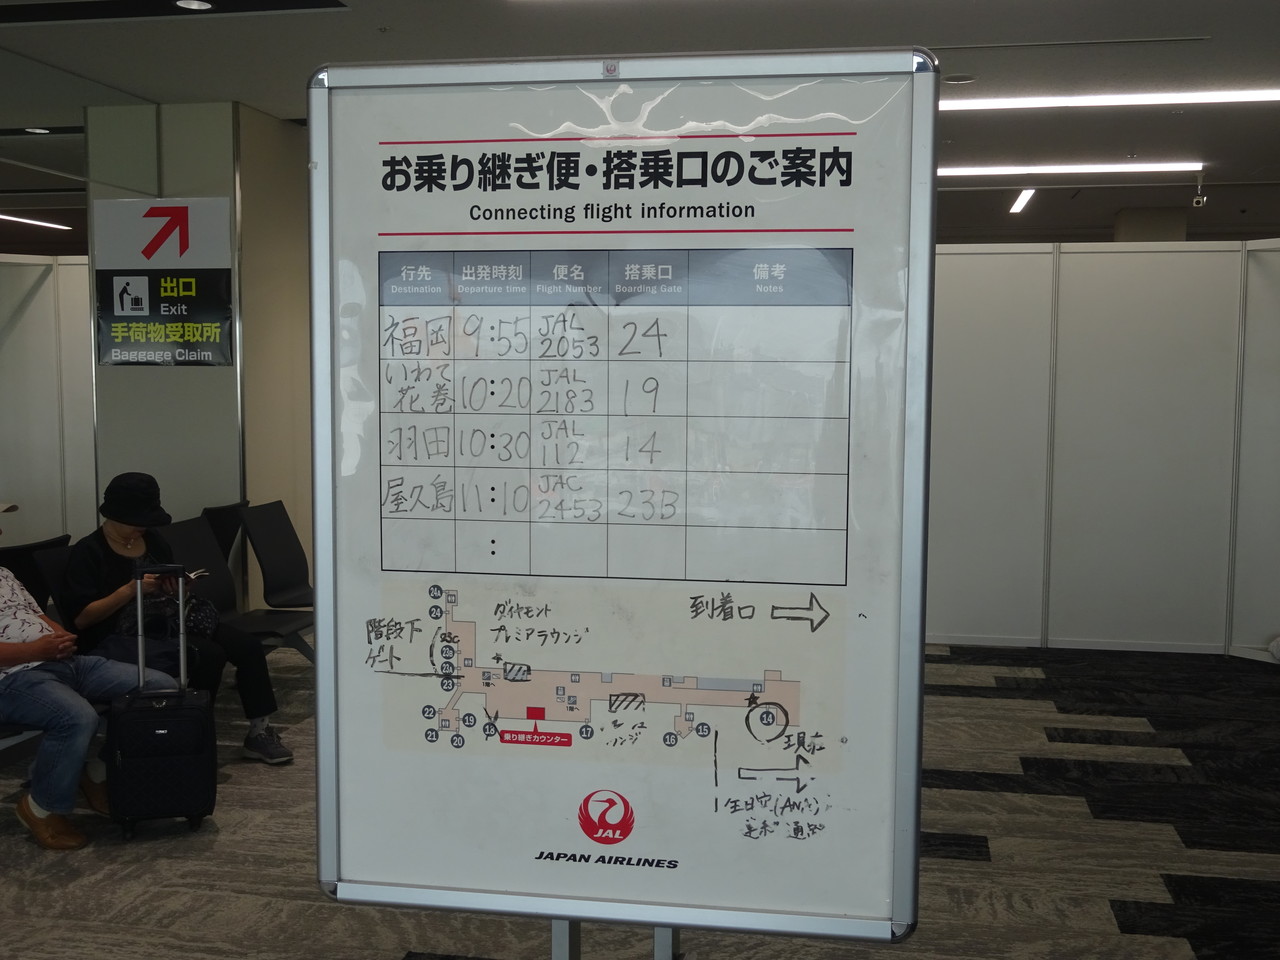 お乗り継ぎ便・搭乗口のご案内
Connecting flight information
行先 出発時刻 便名 搭乗口 備考
Destination Departure time Flight Number Boarding Gate Notes
福岡 9:55 JAL 2053 24
いわて花巻 10:20 JAL 2183 19
羽田 10:30 JAL 112 14
屋久島 11:10 JAC 2453 23B
:
到着口
ダイヤモンド
プレミアラウンジ
階段下
ゲート
24A
24
23C
23B
23A
23
22
21
20
19
18
17
16
15
14
1階へ
1階へ
乗り継ぎカウンター
現在
JAL
JAPAN AIRLINES
出口
Exit
手荷物受取所
Baggage Claim